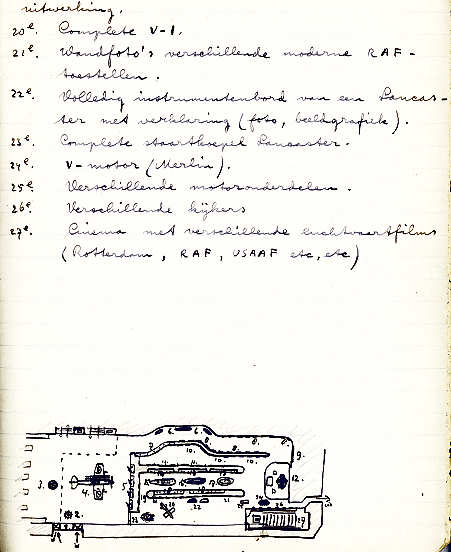 uitwerking.
20e. Complete V-1.
21e. Wandfoto's verschillende moderne RAF-
toestellen.
22e. Volledig instrumentenbord van een Lancas-
ter met verklaring (foto, beeldgrafiek).
23e. Complete staartkoepel Lancaster.
24e. V-motor (Merlin).
25e. Verschillende motoronderdelen.
26e. Verschillende kijkers
27e. Cinema met verschillende luchtvaartfilms
(Rotterdam, RAF, USAAF etc, etc)
6. 6.
7. 8. 8. 8.
10. 10. 10. 9.
3. 4. 5. 12.
2.